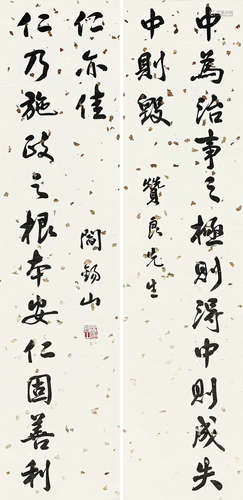 中為治事之極則得中則成失
中則毀
贊良先生
仁乃施政之根本安仁固善利
仁亦佳
閻錫山